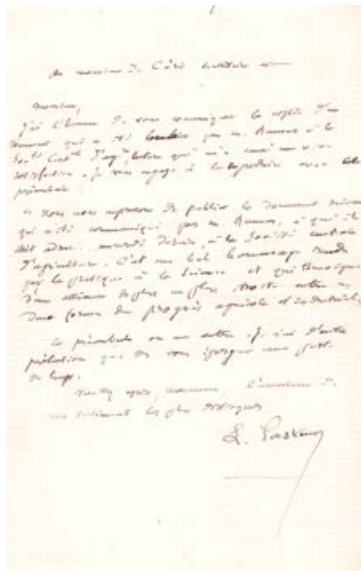 Monsieur,
J'ai l'honneur de vous communiquer la copie d'un
document qui a été par M. à la
Société Cent. d'agriculture qui m'a causé une vive
satisfaction. Je vous engage à le reproduire avec le
préambule :
" Nous nous empressons de publier le document suivant
qui a été communiqué par M. à qui il
était mercredi dernier, à la Société centrale
d'agriculture. C'est un bel hommage rendu
par la pratique à la science et qui témoigne
d'une alliance de plus en plus étroite entre ces
deux forces du progrès agricole et industriel.
Ce préambule ou un autre. Je n'ai d'autre
prétention que de vous épargner une perte
de temps.
Veuillez agréer, Monsieur, l'assurance de
mes sentiments les plus distingués
L. Pasteur